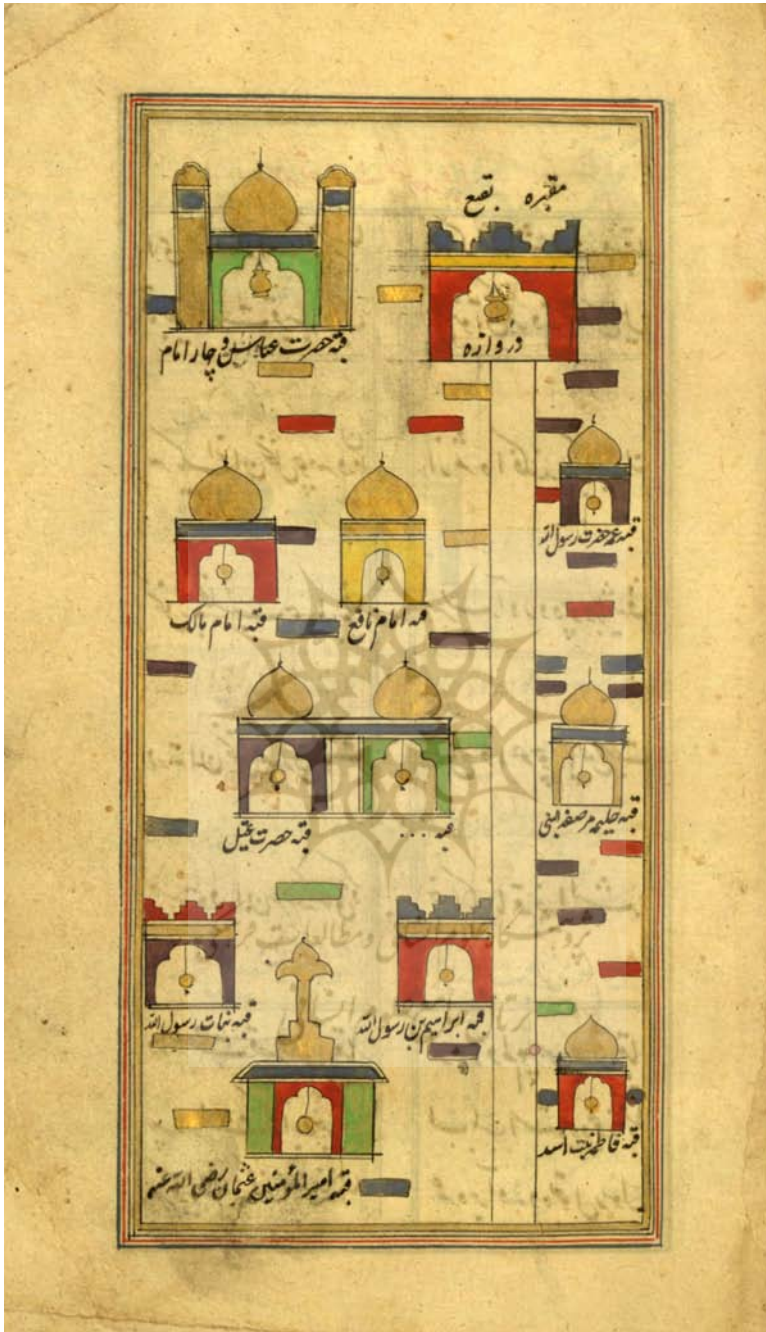 مقبره بقیع
دروازه
قبه حضرت عباس و چار امام
قبه عمه حضرت رسول الله
قبه امام نافع
قبه امام مالک
قبه حلیمه مرضعه النبی
قبه ...
قبه حضرت عقیل
قبه ابراهیم بن رسول الله
قبه بنات رسول الله
قبه فاطمه بنت اسد
قبه امیر المؤمنین عثمان رضی الله عنه